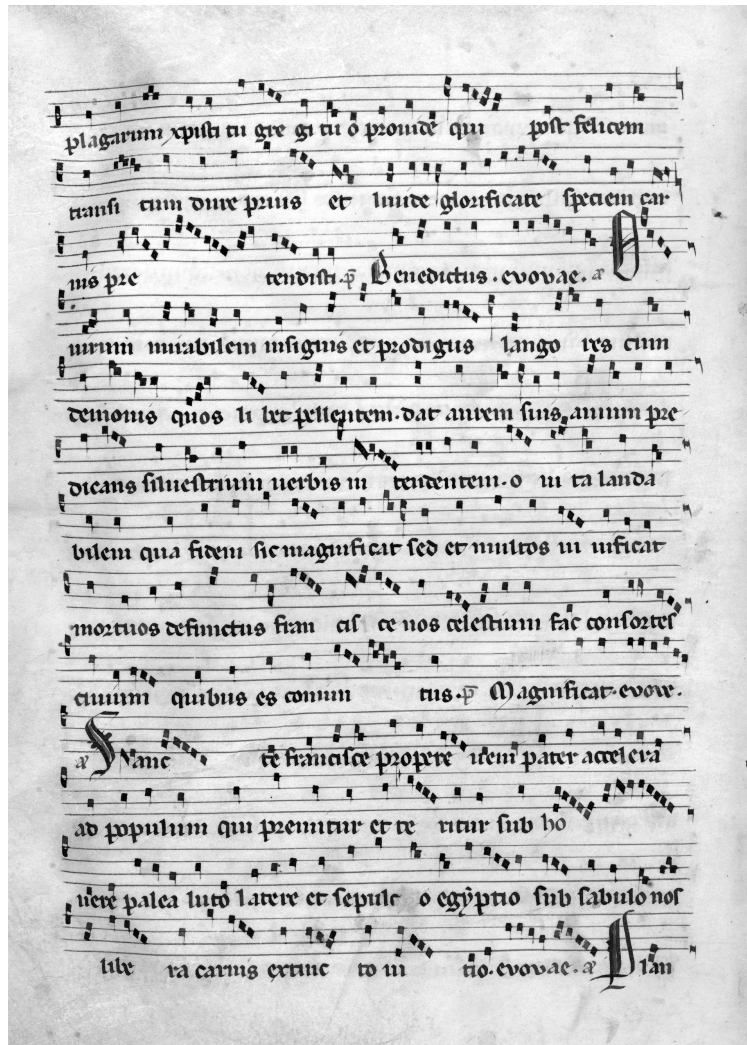 plagarum xpisti tu gre gi tu o prouide qui post felicem
transi tum dure prius et liuide glorificate speciem car
nis pre tendisti. p̄ Benedictus. evovae. æ O
uirum mirabilem insignis et prodigus lango res cum
demonis quos li bet pellentem. dat aurem suis auium pre
dicans siluestrium uerbis in tendentem. o ui ta lauda
bilem qua fidem sic magnificat sed et multos ui uificat
mortuos defunctus fran cis ce nos celestium fac consortes
ciuium quibus es coniun tus. p̄ Magnificat. evove.
æ Sanc te francisce propere ueni pater accelera
ad populum qui premitur et te ritur sub ho
nere palea luto latere et sepulc o egyptio sub sabulo nos
libe ra carnis extinc to ui tio. evovae. æ Plan